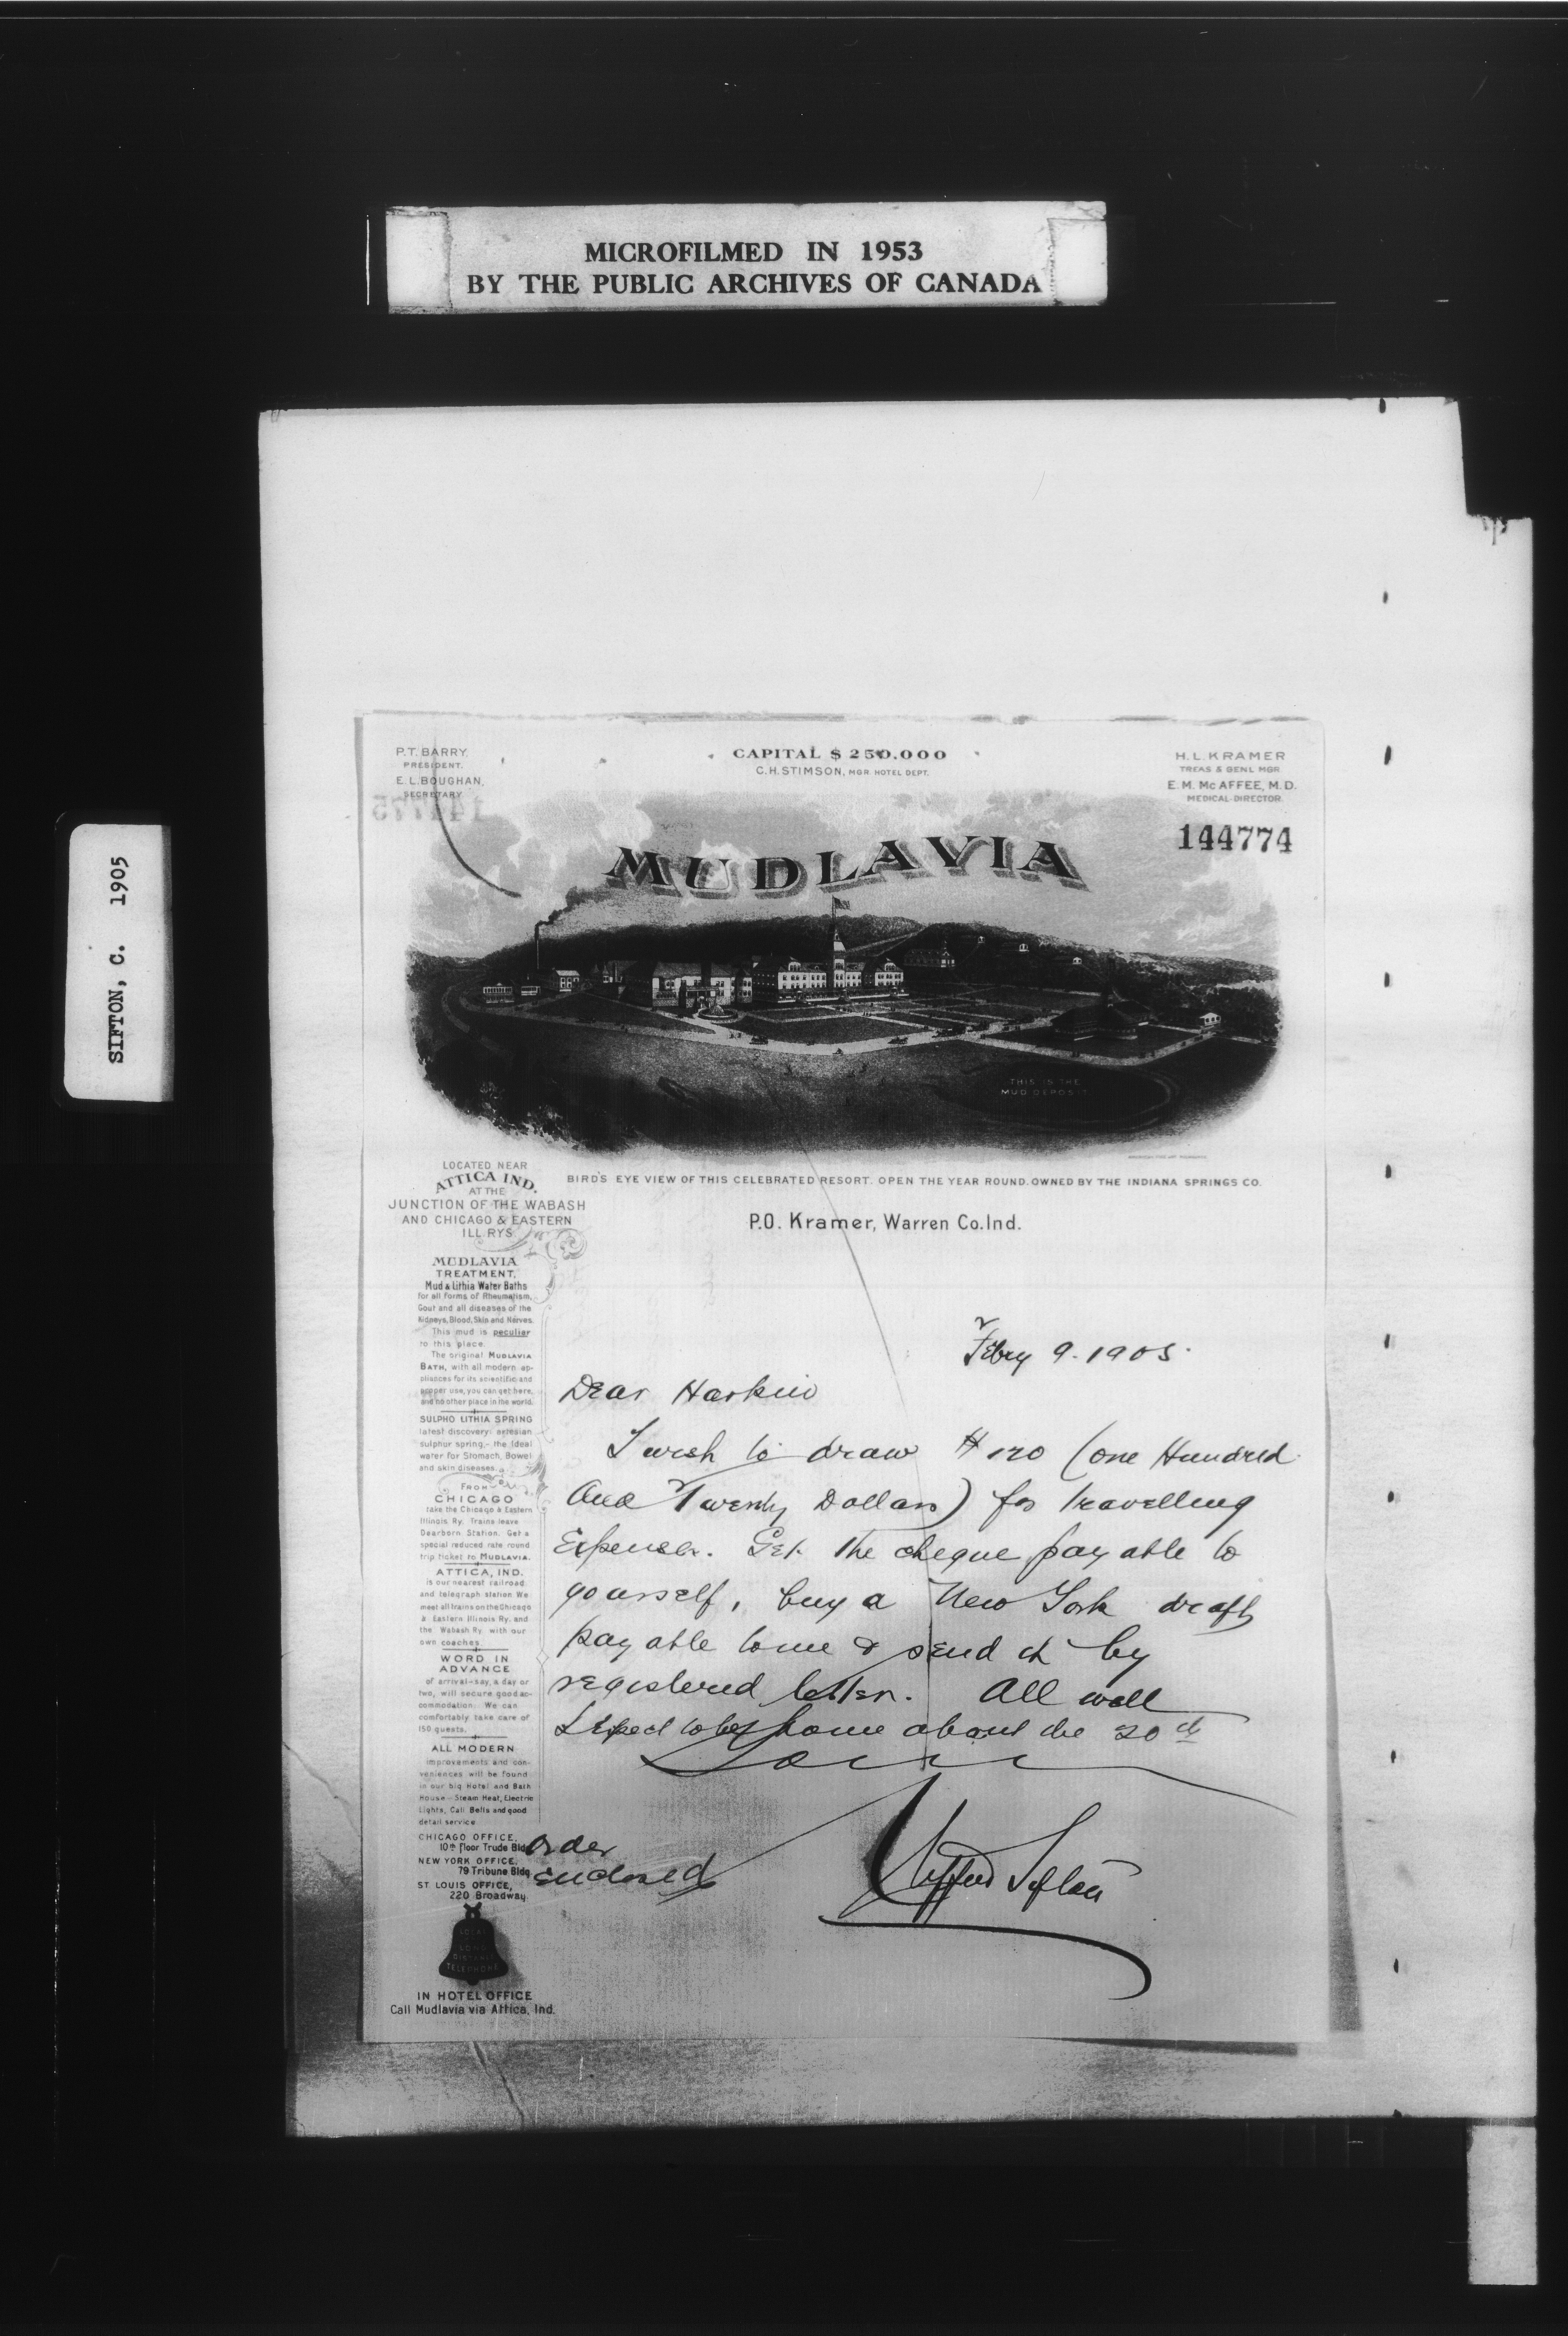 MICROFILMED IN 1953
BY THE PUBLIC ARCHIVES OF CANADA
SIFTON, C. 1905
P.T. BARRY,
PRESIDENT.
E.L. BOUGHAN,
SECRETARY
CAPITAL $250.000
C.H. STIMSON, MGR. HOTEL DEPT.
H.L. KRAMER
TREAS & GENL MGR.
E.M. McAFFEE, M.D.
MEDICAL DIRECTOR.
144775
144774
MUDLAVIA
THIS IS THE
MUD DEPOSIT
BIRD'S EYE VIEW OF THIS CELEBRATED RESORT. OPEN THE YEAR ROUND. OWNED BY THE INDIANA SPRINGS CO.
P.O. Kramer, Warren Co. Ind.
LOCATED NEAR
ATTICA IND.
AT THE
JUNCTION OF THE WABASH
AND CHICAGO & EASTERN
ILL. RYS.
MUDLAVIA
TREATMENT,
Mud & Lithia Water Baths
for all forms of Rheumatism,
Gout and all diseases of the
Kidneys, Blood, Skin and Nerves.
This mud is peculiar
to this place.
The original MUDLAVIA
BATH, with all modern ap-
pliances for its scientific and
proper use, you can get here,
and no other place in the world.
SULPHO LITHIA SPRING
latest discovery: artesian
sulphur spring,- the Ideal
water for Stomach, Bowel
and skin diseases.
FROM
CHICAGO
take the Chicago & Eastern
Illinois Ry. Trains leave
Dearborn Station. Get a
special reduced rate round
trip ticket to MUDLAVIA.
ATTICA, IND.
is our nearest railroad
and telegraph station. We
meet all trains on the Chicago
& Eastern Illinois Ry. and
the Wabash Ry. with our
own coaches.
WORD IN
ADVANCE
of arrival-say, a day or
two, will secure good ac-
commodation. We can
comfortably take care of
150 guests.
ALL MODERN
improvements and con-
veniences will be found
in our big Hotel and Bath
House - Steam Heat, Electric
Lights, Call Bells and good
detail service
CHICAGO OFFICE,
10th floor Trude Bldg.
NEW YORK OFFICE,
79 Tribune Bldg.
ST. LOUIS OFFICE,
220 Broadway.
LONG
DISTANCE
TELEPHONE
IN HOTEL OFFICE
Call Mudlavia via Attica, Ind.
Febry 9. 1905.
Dear Harkin
I wish to draw $120 (one Hundred
And Twenty Dollars) for travelling
Expenses. Get the cheque payable to
yourself, buy a New York draft
payable to me & send it by
registered letter. All well
Expect to be home about the 20th
Yours
Clifford Sifton
Order
Enclosed